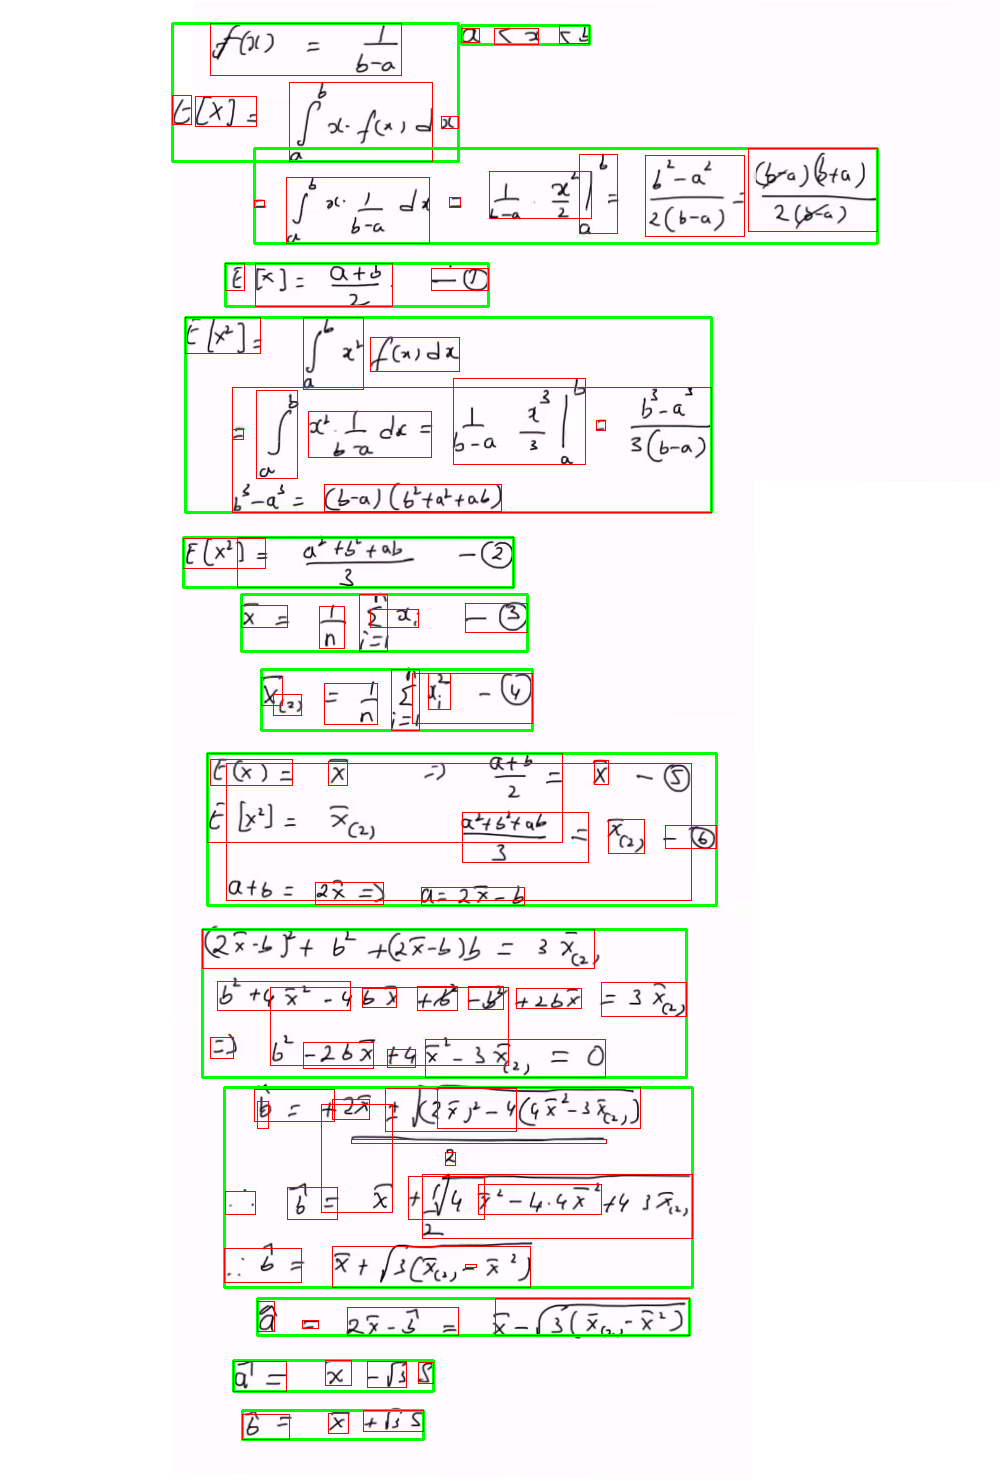 f(x) = 1/(b-a)   a < x < b
E[X] = ∫_a^b x · f(x) dx
= ∫_a^b x · 1/(b-a) dx = 1/(b-a) · x²/2 |_a^b = (b²-a²)/(2(b-a)) = (b-a)(b+a)/(2(b-a))
E[X] = (a+b)/2   — ①
E[X²] = ∫_a^b x² f(x) dx
= ∫_a^b x² · 1/(b-a) dx = 1/(b-a) x³/3 |_a^b = (b³-a³)/(3(b-a))
b³-a³ = (b-a)(b²+a²+ab)
E[X²] = (a²+b²+ab)/3   — ②
x̄ = 1/n Σ_{i=1}^n x_i   — ③
x̄_(2) = 1/n Σ_{i=1}^n x_i²   — ④
E(x) = x̄   ⇒   (a+b)/2 = x̄   — ⑤
E[x²] = x̄_(2)   (a²+b²+ab)/3 = x̄_(2)   — ⑥
a+b = 2x̄ ⇒ a = 2x̄ - b
(2x̄-b)² + b² + (2x̄-b)b = 3 x̄_(2)
b² + 4x̄² - 4bx̄ + b² - b² + 2bx̄ = 3 x̄_(2)
⇒ b² - 2bx̄ + 4x̄² - 3x̄_(2) = 0
b̂ = (+2x̄ ± √((2x̄)² - 4(4x̄² - 3x̄_(2))))/2
∴ b̂ = x̄ + √(4x̄² - 4·4x̄² + 4 3x̄_(2))/2
∴ b̂ = x̄ + √(3(x̄_(2) - x̄²))
â = 2x̄ - b̂ = x̄ - √(3(x̄_(2) - x̄²))
â = x̄ - √3 S
b̂ = x̄ + √3 S